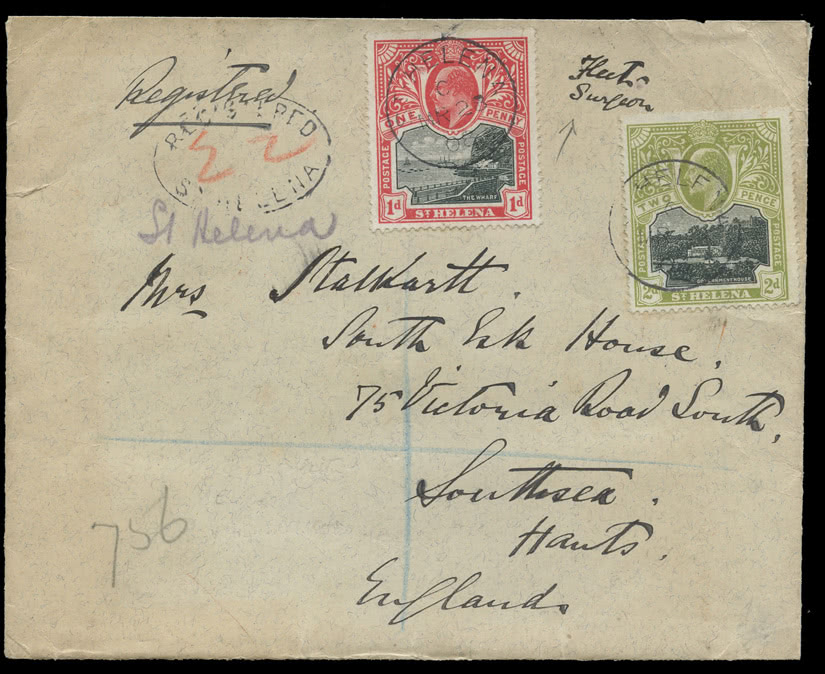 Registered
REGISTERED
22
ST HELENA
St Helena
HELENA
09
ONE PENNY
POSTAGE POSTAGE
THE WHARF
1d ST HELENA 1d
Fleet
Surgeon
HELEN
TWO PENCE
POSTAGE POSTAGE
2d ST HELENA 2d
Mrs Stalkartt.
South Esk House.
75 Victoria Road South,
Southsea.
Hants.
England
756